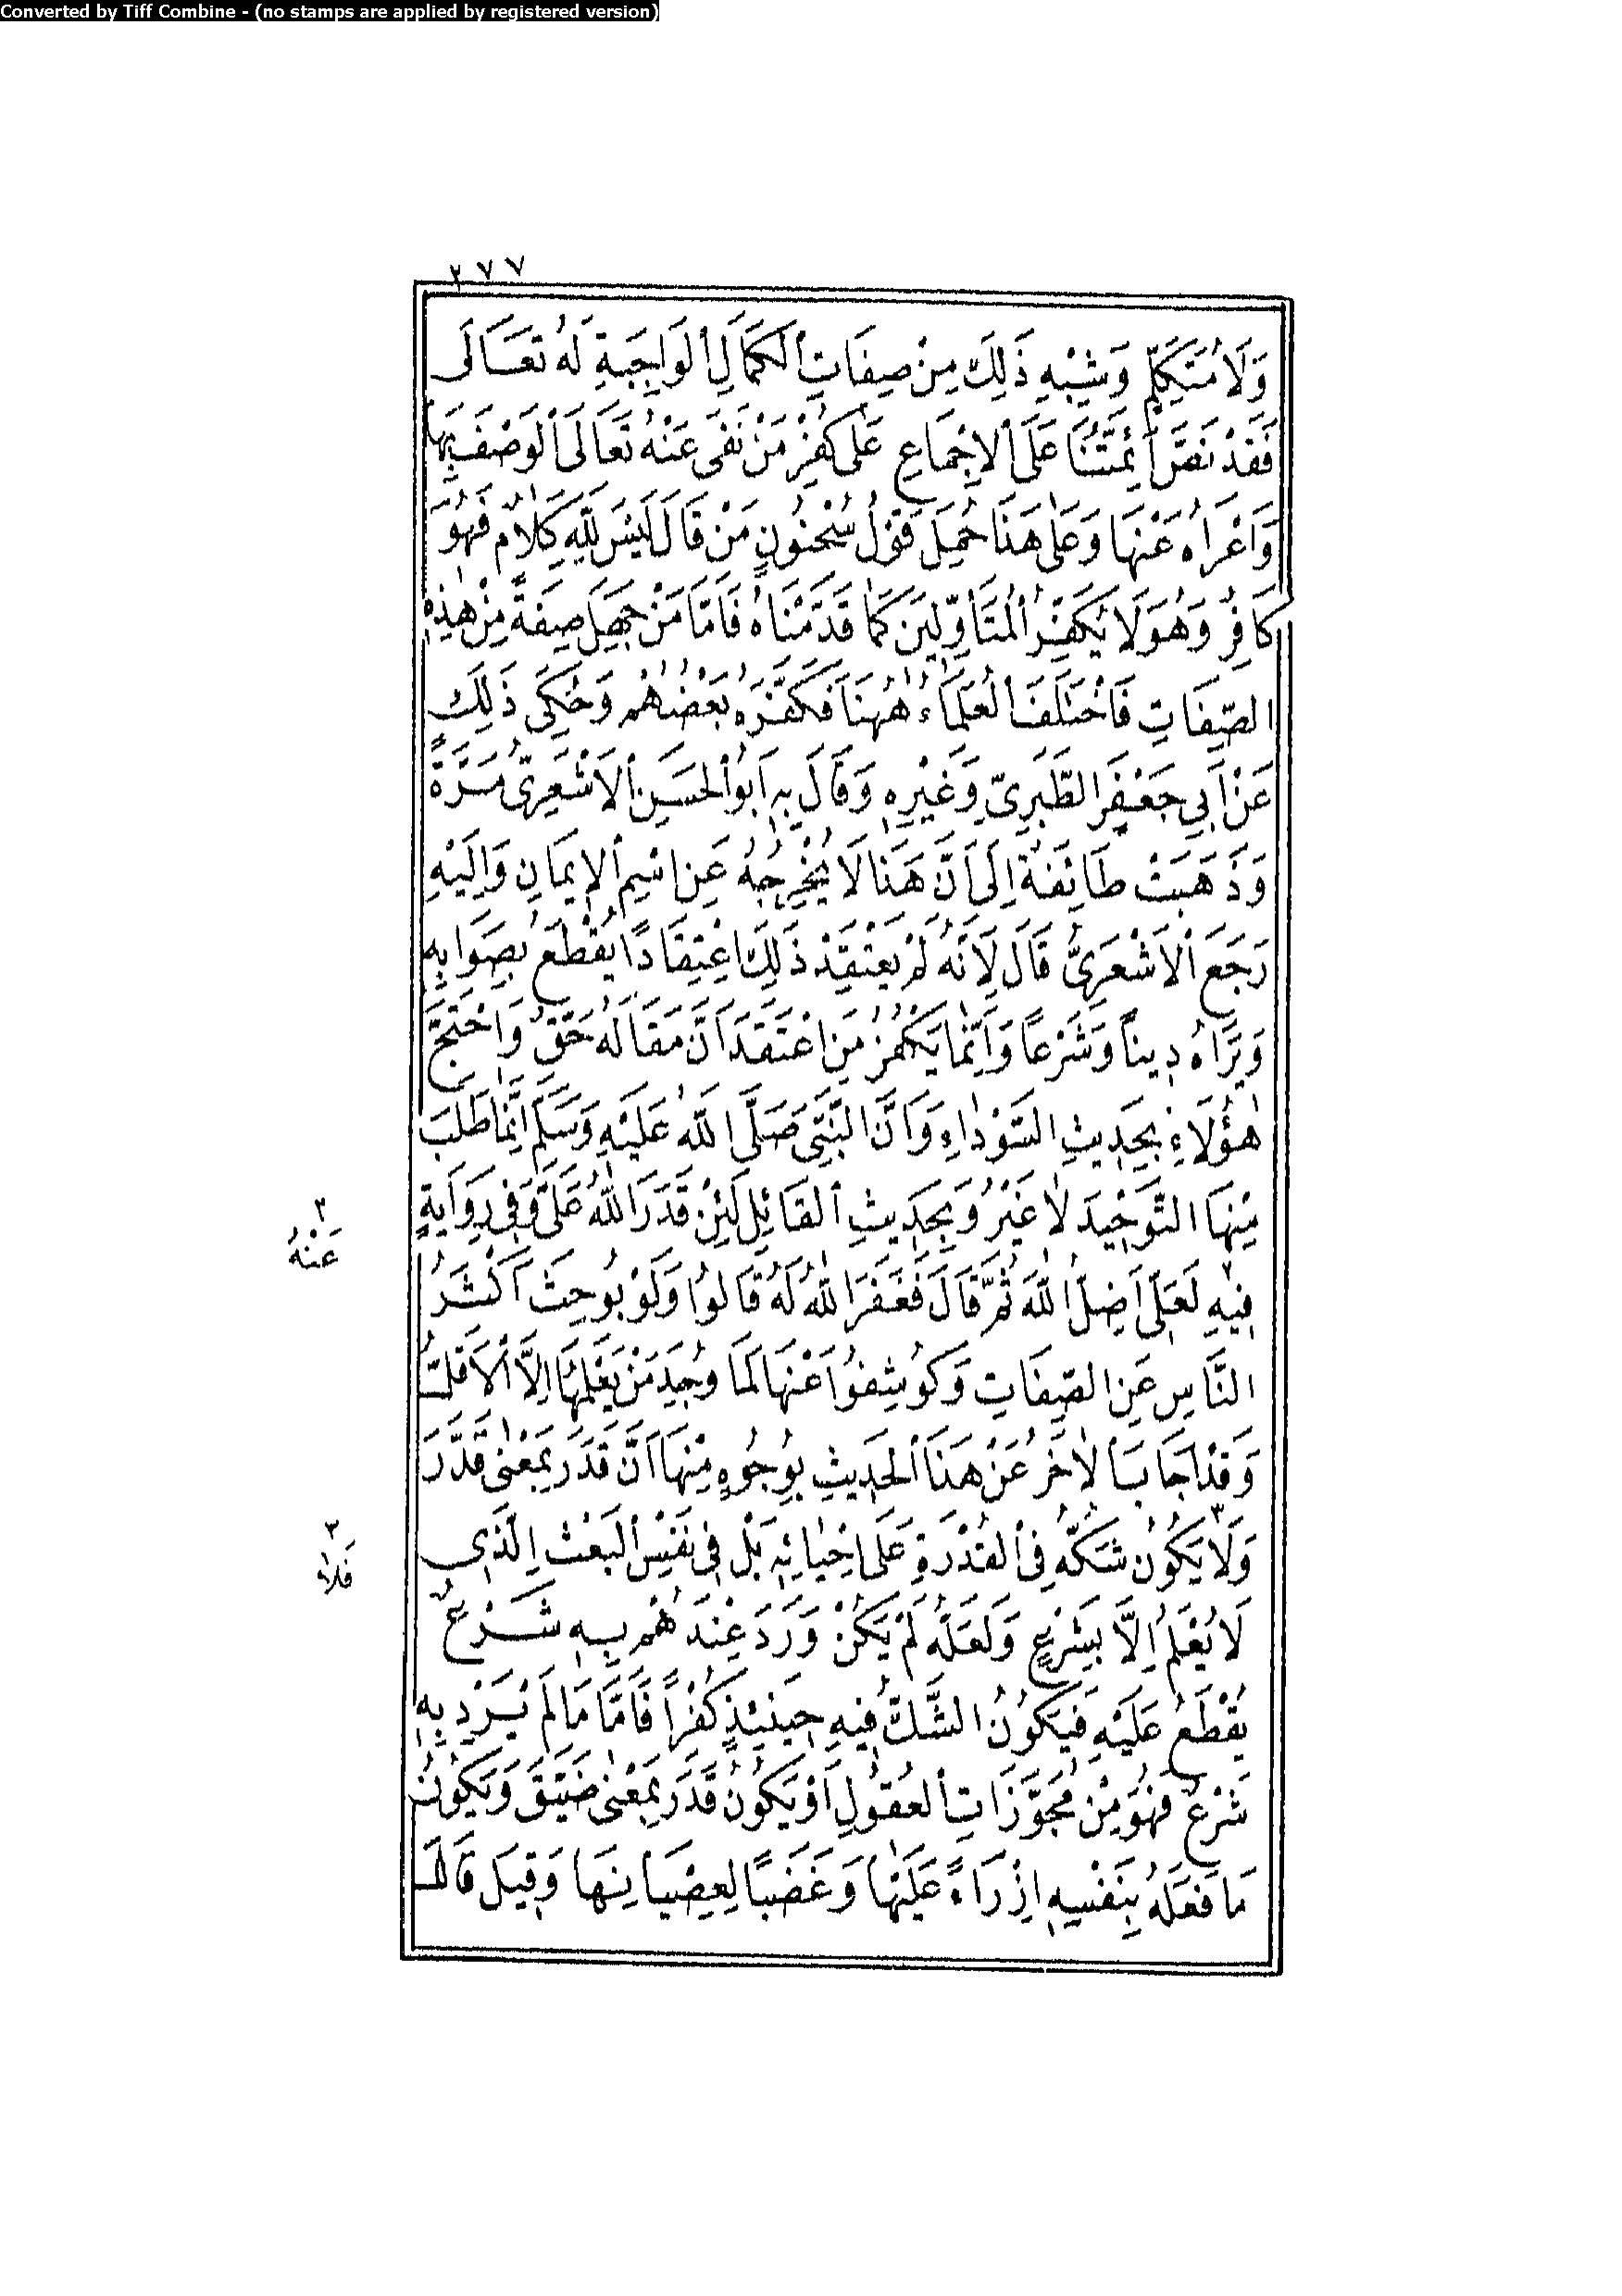 Converted by Tiff Combine - (no stamps are applied by registered version)
٢٧٧
وَلَا مُتَكَلِّمٌ وَشِبْهِ ذٰلِكَ مِنْ صِفَاتِ الْكَمَالِ الْوَاجِبَةِ لَهُ تَعَالَى
فَقَدْ نَصَّ أَئِمَّتُنَا عَلَى الْإِجْمَاعِ عَلَى كُفْرِ مَنْ نَفَى عَنْهُ تَعَالَى الْوَصْفَ بِهَا
وَاَعْرَاهُ عَنْهَا وَعَلَى هَذَا حُمِلَ قَوْلُ سُحْنُونٍ مَنْ قَالَ لَيْسَ لِلّٰهِ كَلَامٌ فَهُوَ
كَافِرٌ وَهُوَ لَا يُكَفِّرُ الْمُتَأَوِّلِينَ كَمَا قَدَّمْنَاهُ فَاَمَّا مَنْ جَهِلَ صِفَةً مِنْ هٰذِهِ
الصِّفَاتِ فَاخْتَلَفَ الْعُلَمَاءُ هٰهُنَا فَكَفَّرَهُ بَعْضُهُمْ وَحُكِىَ ذٰلِكَ
عَنْ اَبِي جَعْفَرٍ الطَّبَرِىِّ وَغَيْرِهِ وَقَالَ بِهِ اَبُو الْحَسَنِ الْاَشْعَرِىُّ مَرَّةً
وَذَهَبَتْ طَائِفَةٌ اِلَى اَنَّ هَذَا لَا يُخْرِجُهُ عَنِ اسْمِ الْإِيمَانِ وَاِلَيْهِ
رَجَعَ الْاَشْعَرِىُّ قَالَ لِاَنَّهُ لَمْ يَعْتَقِدْ ذٰلِكَ اعْتِقَادًا يُقْطَعُ بِصَوَابِهِ
وَيَرَاهُ دِيناً وَشَرْعاً وَاِنَّمَا يَكْفُرُ مَنِ اعْتَقَدَ اَنَّ مَقَالَهُ حَقٌّ وَاحْتَجَّ
هٰؤُلَاءِ بِحَدِيثِ السَّوْدَاءِ وَاَنَّ النَّبِىَّ صَلَّى اللّٰهُ عَلَيْهِ وَسَلَّمَ اِنَّمَا طَلَبَ
مِنْهَا التَّوْحِيدَ لَا غَيْرُ وَبِحَدِيثِ الْقَائِلِ لَئِنْ قَدَرَ اللّٰهُ عَلَىَّ وَفِى رِوَايَةٍ
٢
عَنْهُ
فِيهِ لَعَلِّى اَضِلُّ اللّٰهَ ثُمَّ قَالَ فَغَفَرَ اللّٰهُ لَهُ قَالُوا وَلَوْ بُوحِثَ اَكْثَرُ
النَّاسِ عَنِ الصِّفَاتِ وَكُوشِفُوا عَنْهَا لَمَا وُجِدَ مَنْ يَعْلَمُهَا اِلَّا الْاَقَلُّ
وَقَدْ اَجَابَ الْاٰخَرُ عَنْ هَذَا الْحَدِيثِ بِوُجُوهٍ مِنْهَا اَنَّ قَدَرَ بِمَعْنَى قَدَّرَ
وَلَا يَكُونُ شَكُّهُ فِى الْقُدْرَةِ عَلَى اِحْيَائِهِ بَلْ فِى نَفْسِ الْبَعْثِ الَّذِى
٣
فَلَا
لَا يُعْلَمُ اِلَّا بِشَرْعٍ وَلَعَلَّهُ لَمْ يَكُنْ وَرَدَ عِنْدَهُمْ بِهِ شَرْعٌ
يُقْطَعُ عَلَيْهِ فَيَكُونُ الشَّكُّ فِيهِ حِينَئِذٍ كُفْراً فَاَمَّا مَا لَمْ يَرِدْ بِهِ
شَرْعٌ فَهُوَ مِنْ مُجَوَّزَاتِ الْعُقُولِ اَوْ يَكُونُ قَدَرَ بِمَعْنَى ضَيَّقَ وَيَكُونُ
مَا فَعَلَهُ بِنَفْسِهِ اِزْرَاءً عَلَيْهَا وَغَضَبًا لِعِصْيَانِهَا وَقِيلَ قَالَ مَا